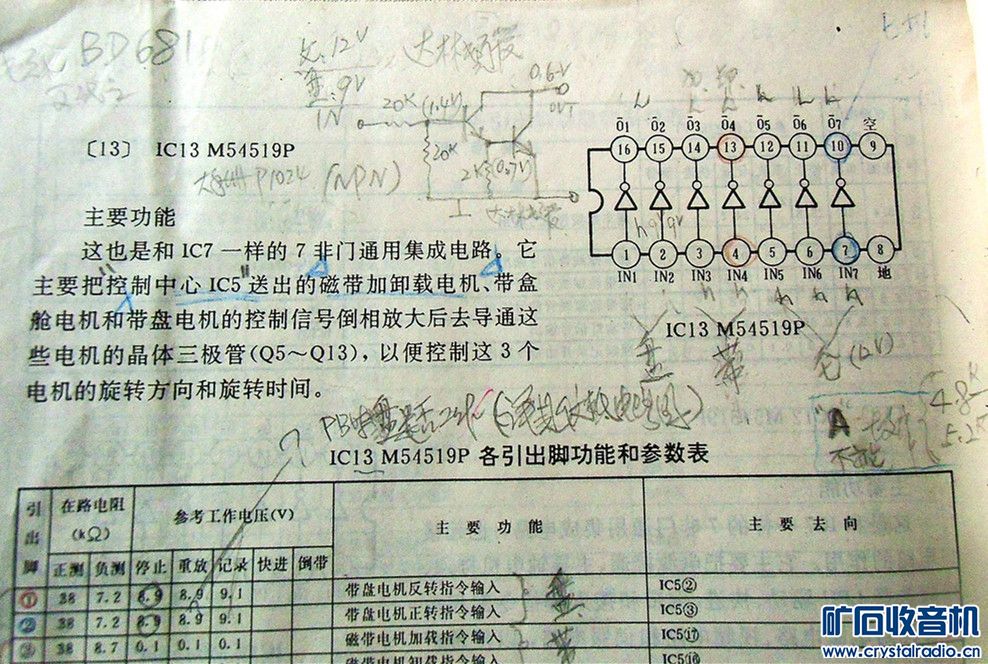 BD681
12V
9V
达林顿
20K (1.4V)
0.6V
OUT
IN
20K
2K (0.7V)
(NPN)
〔13〕 IC13 M54519P
主要功能
这也是和 IC7 一样的 7 非门通用集成电路。它
主要把"控制中心 IC5"送出的磁带加卸载电机、带盒
舱电机和带盘电机的控制信号倒相放大后去导通这
些电机的晶体三极管(Q5～Q13),以便控制这 3 个
电机的旋转方向和旋转时间。
Ō1 Ō2 Ō3 Ō4 Ō5 Ō6 Ō7 空
16 15 14 13 12 11 10 9
1 2 3 4 5 6 7 8
IN1 IN2 IN3 IN4 IN5 IN6 IN7 地
IC13 M54519P
盘 带 仓(12V)
"A"
4.8K
IC13 M54519P 各引出脚功能和参数表
引出脚 在路电阻(kΩ) 参考工作电压(V) 主要功能 主要去向
正测 负测 停止 重放 记录 快进 倒带
① 38 7.2 8.9 8.9 9.1 带盘电机反转指令输入 IC5②
② 38 7.2 8.9 8.9 9.1 带盘电机正转指令输入 盘 IC5③
③ 38 8.7 0.1 0.1 0.1 磁带电机加载指令输入 带 IC5⑰
磁带电机卸载指令输入 IC5⑯
矿石收音机
www.crystalradio.cn